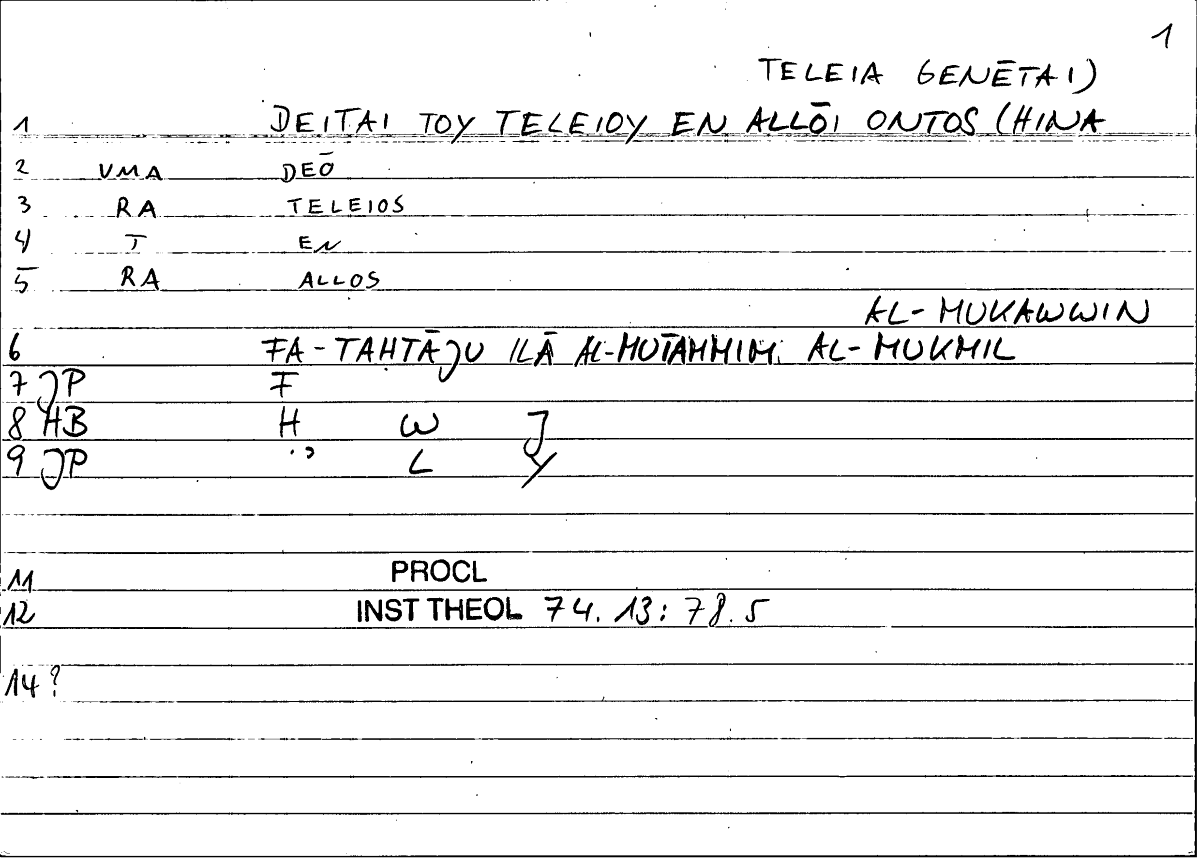 1
TELEIA GENĒTAI)
1 DEITAI TOY TELEIOY EN ALLŌI ONTOS (HINA
2 VMA DEŌ
3 RA TELEIOS
4 T EN
5 RA ALLOS
AL-MUKAWWIN
6 FA-TAHTĀJU ILĀ AL-MUTAMMIM AL-MUKMIL
7 JP F
8 HB H W J
9 JP ʾ L Y
11 PROCL
12 INST THEOL 74.13: 78.5
14?